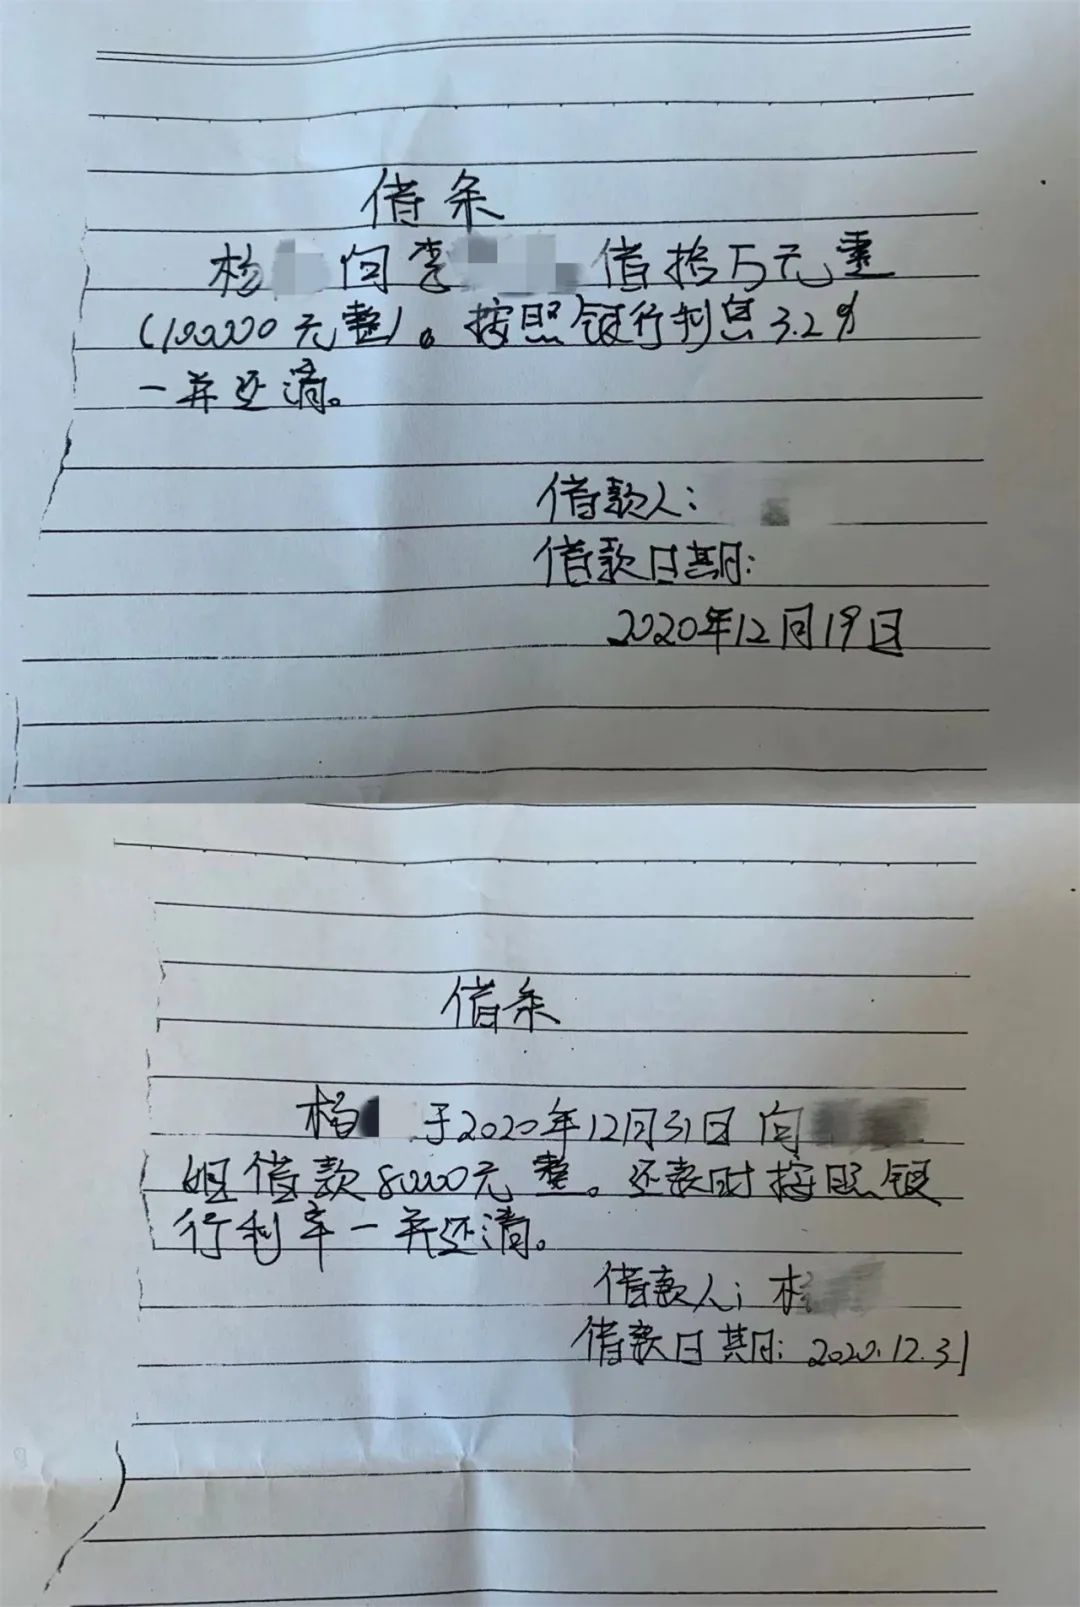 借条
杨 向李 借拾万元整
(100000元整)。按照银行利息3.2%
一并还清。
借款人:
借款日期:
2020年12月19日
借条
杨 于2020年12月31日向
姐借款80000元整。还款时按照银
行利率一并还清。
借款人: 杨
借款日期: 2020.12.31